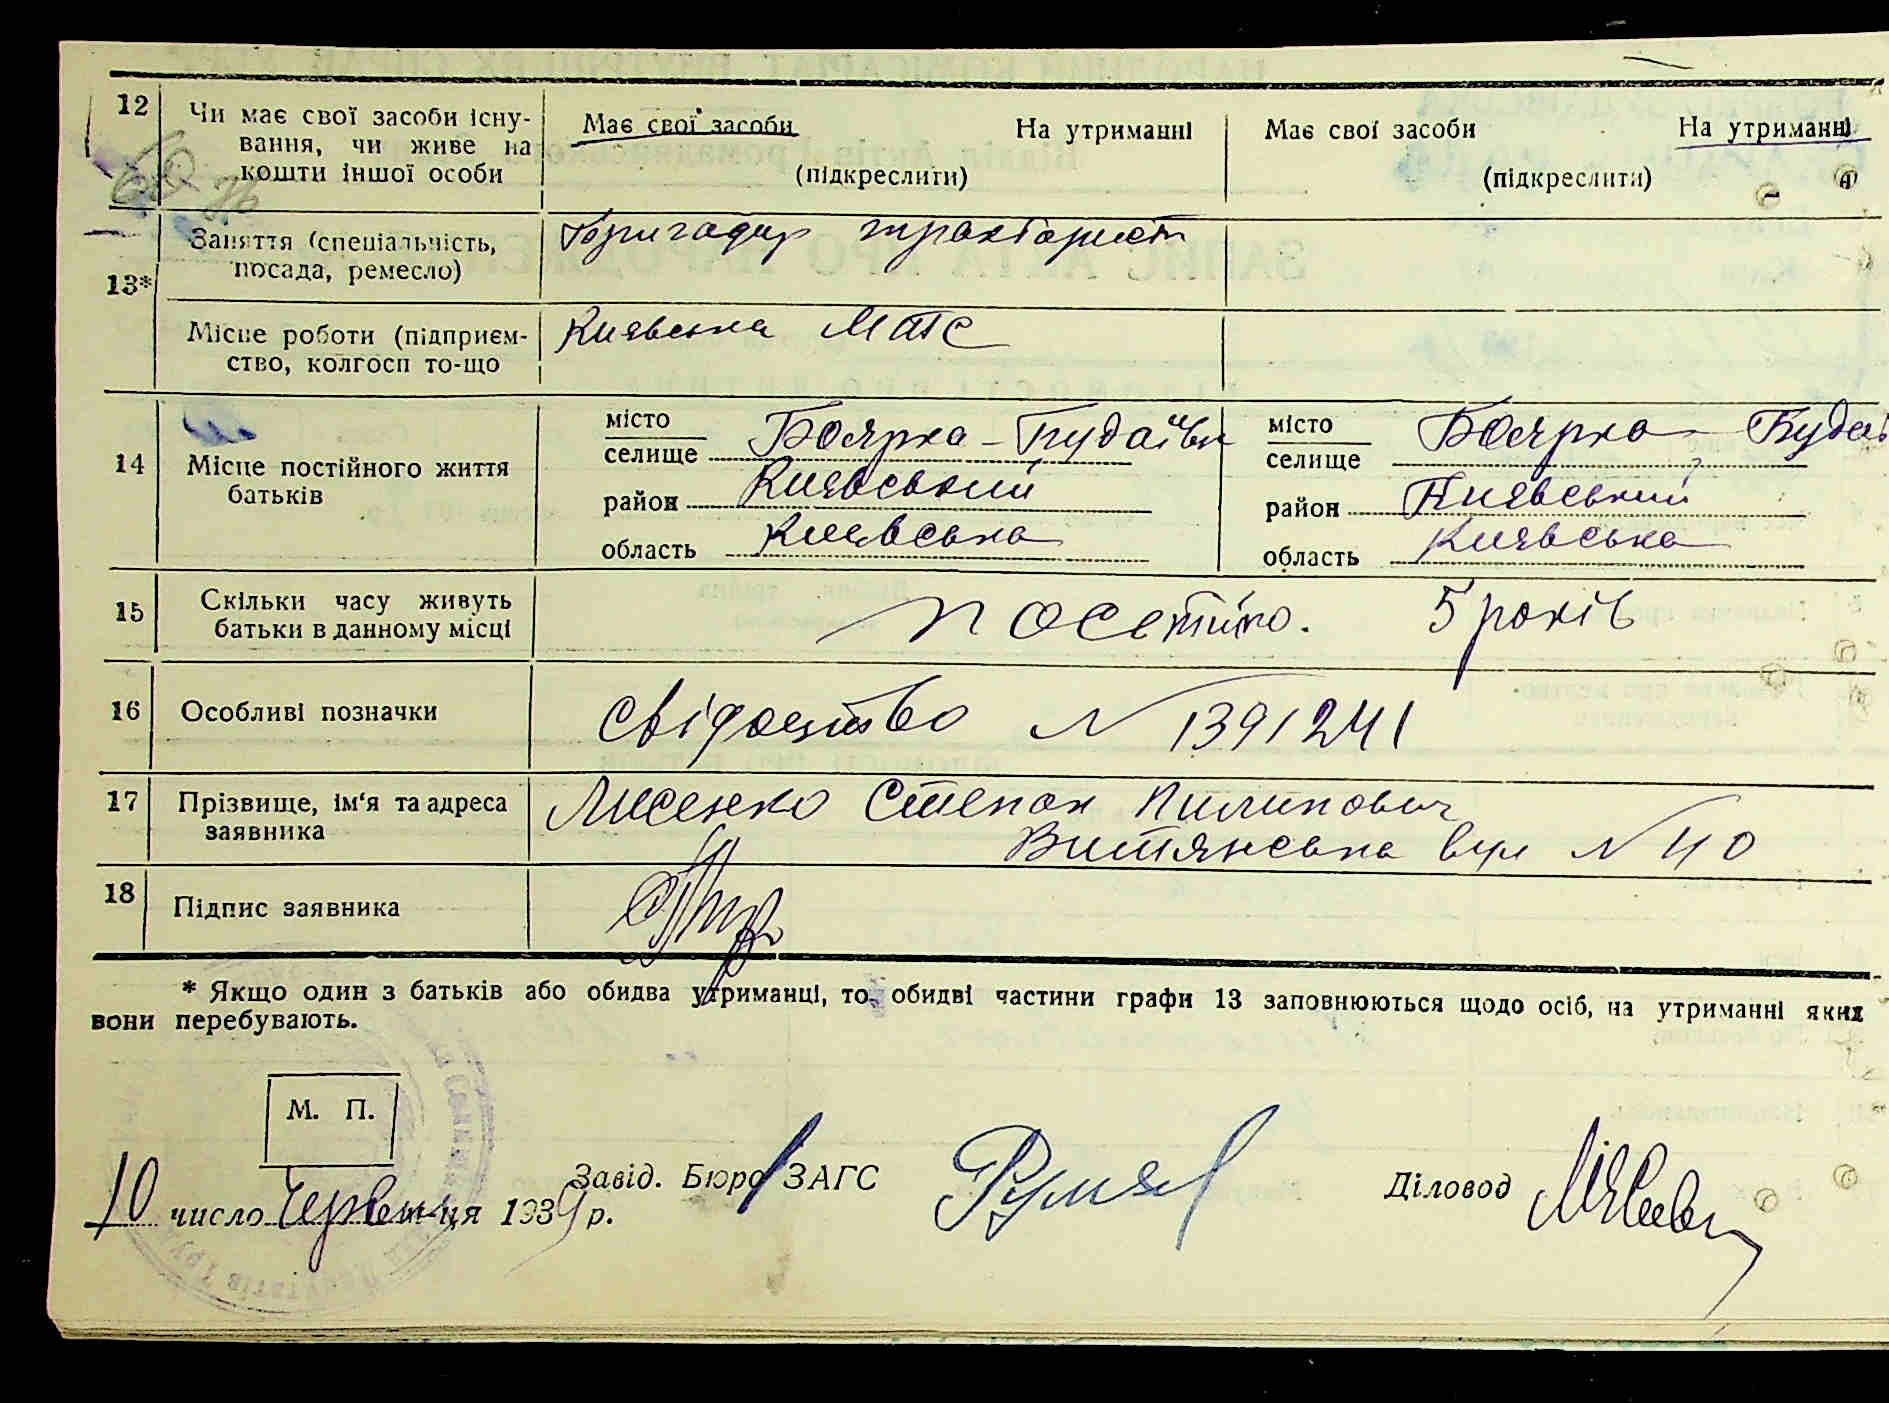 12
Чи має свої засоби існу-
вання, чи живе на
кошти іншої особи
Має свої засоби На утриманні
(підкреслити)
Має свої засоби На утриманні
(підкреслити)
13*
Заняття (спеціальність,
посада, ремесло)
Бригадир тракторист
Місце роботи (підприєм-
ство, колгосп то-що
Киявська МТС
14
Місце постійного життя
батьків
місто
селище Боярка-Будаївка
район Киявський
область Киевська
місто
селище Боярка-Будаї
район Киявський
область Киявська
15
Скільки часу живуть
батьки в данному місці
постійно. 5 років
16
Особливі позначки
Свідоцтво N 1391241
17
Прізвище, ім'я та адреса
заявника
Лисенко Степан Пилипович
Витянська вул N 40
18
Підпис заявника
* Якщо один з батьків або обидва утриманці, то обидві частини графи 13 заповнюються щодо осіб, на утриманні яких
вони перебувають.
М. П.
10 число Червен-ця 1939 р.
Завід. Бюро ЗАГС
Діловод